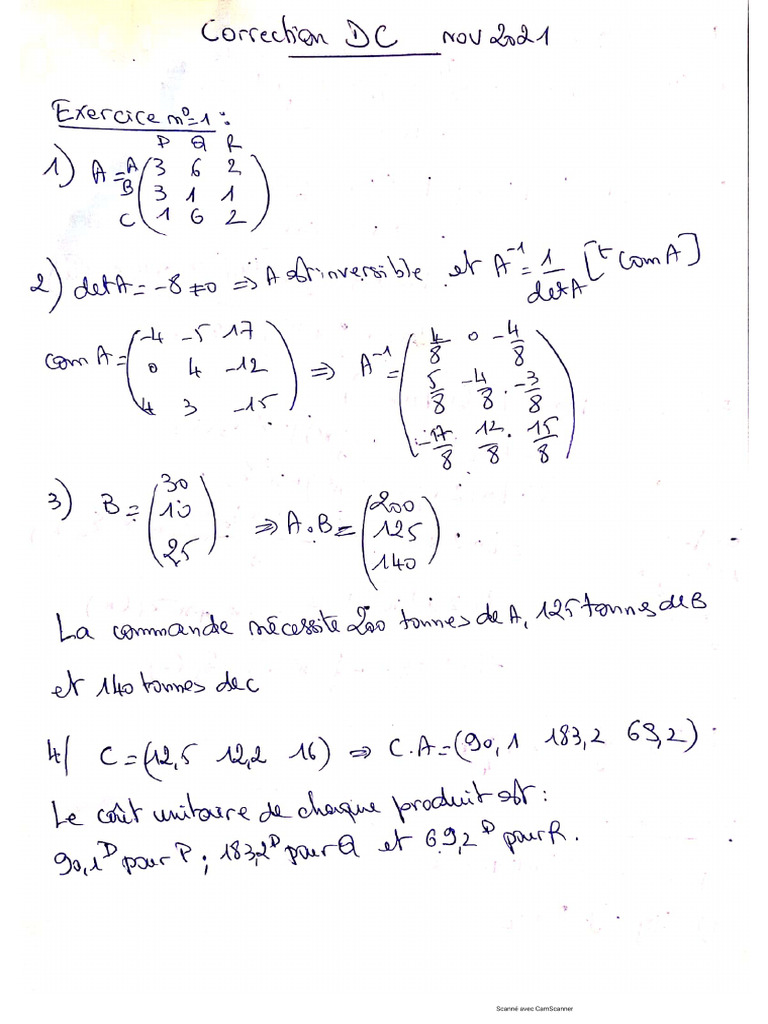 Correction DC nov 2021
Exercice n°=1 :
P Q R
1) A = A (3 6 2
B 3 1 1
C 1 6 2)
2) det A = -8 ≠ 0 ⇒ A est inversible et A⁻¹ = 1/det A [ᵗcom A]
com A = (-4 -5 17
0 4 -12
4 3 -15) ⇒ A⁻¹ = (4/8 0 -4/8
5/8 -4/8 · -3/8
-17/8 12/8 · 15/8)
3) B = (30
10
25) · ⇒ A.B = (200
125
140) ·
La commande nécessite 200 tonnes de A, 125 tonnes de B
et 140 tonnes de C
4/ C = (12,5 12,2 16) ⇒ C.A = (90,1 183,2 69,2) ·
Le coût unitaire de chaque produit est :
90,1ᴰ pour P ; 183,2ᴰ pour Q et 69,2ᴰ pour R.
Scanné avec CamScanner